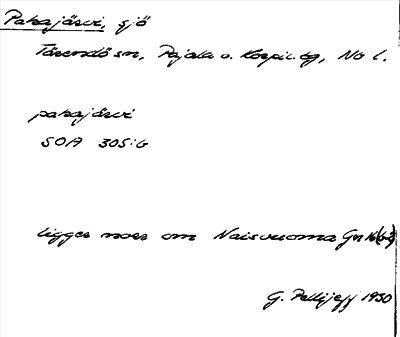 Pahajärvi, sjö
Tärendö sn, Pajala o. Korpil. tg, Nb l.
pahajärvi
SOA 305:6
ligger norr om Naisvuoma
G. Pellijeff 1930